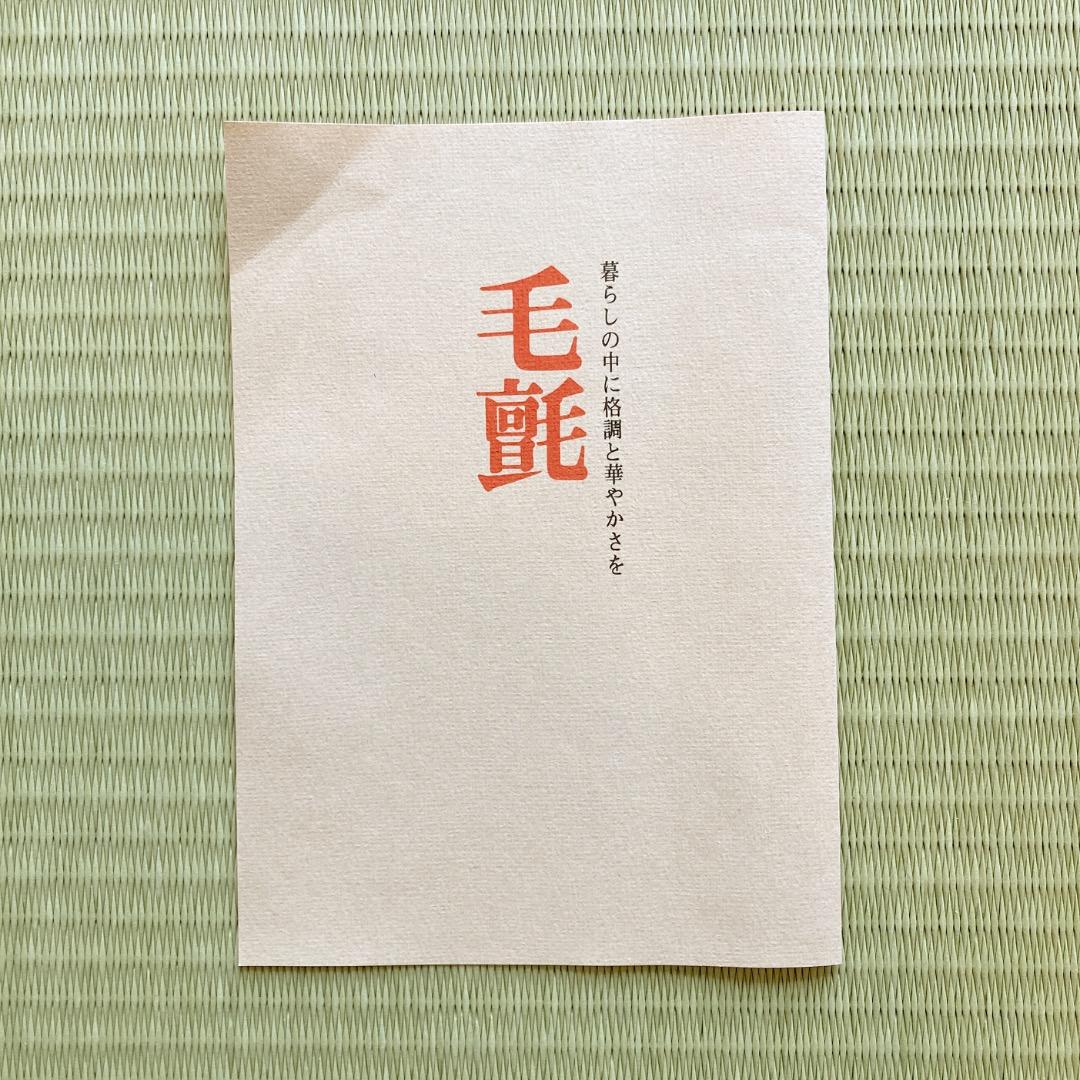 暮らしの中に格調と華やかさを
毛氈